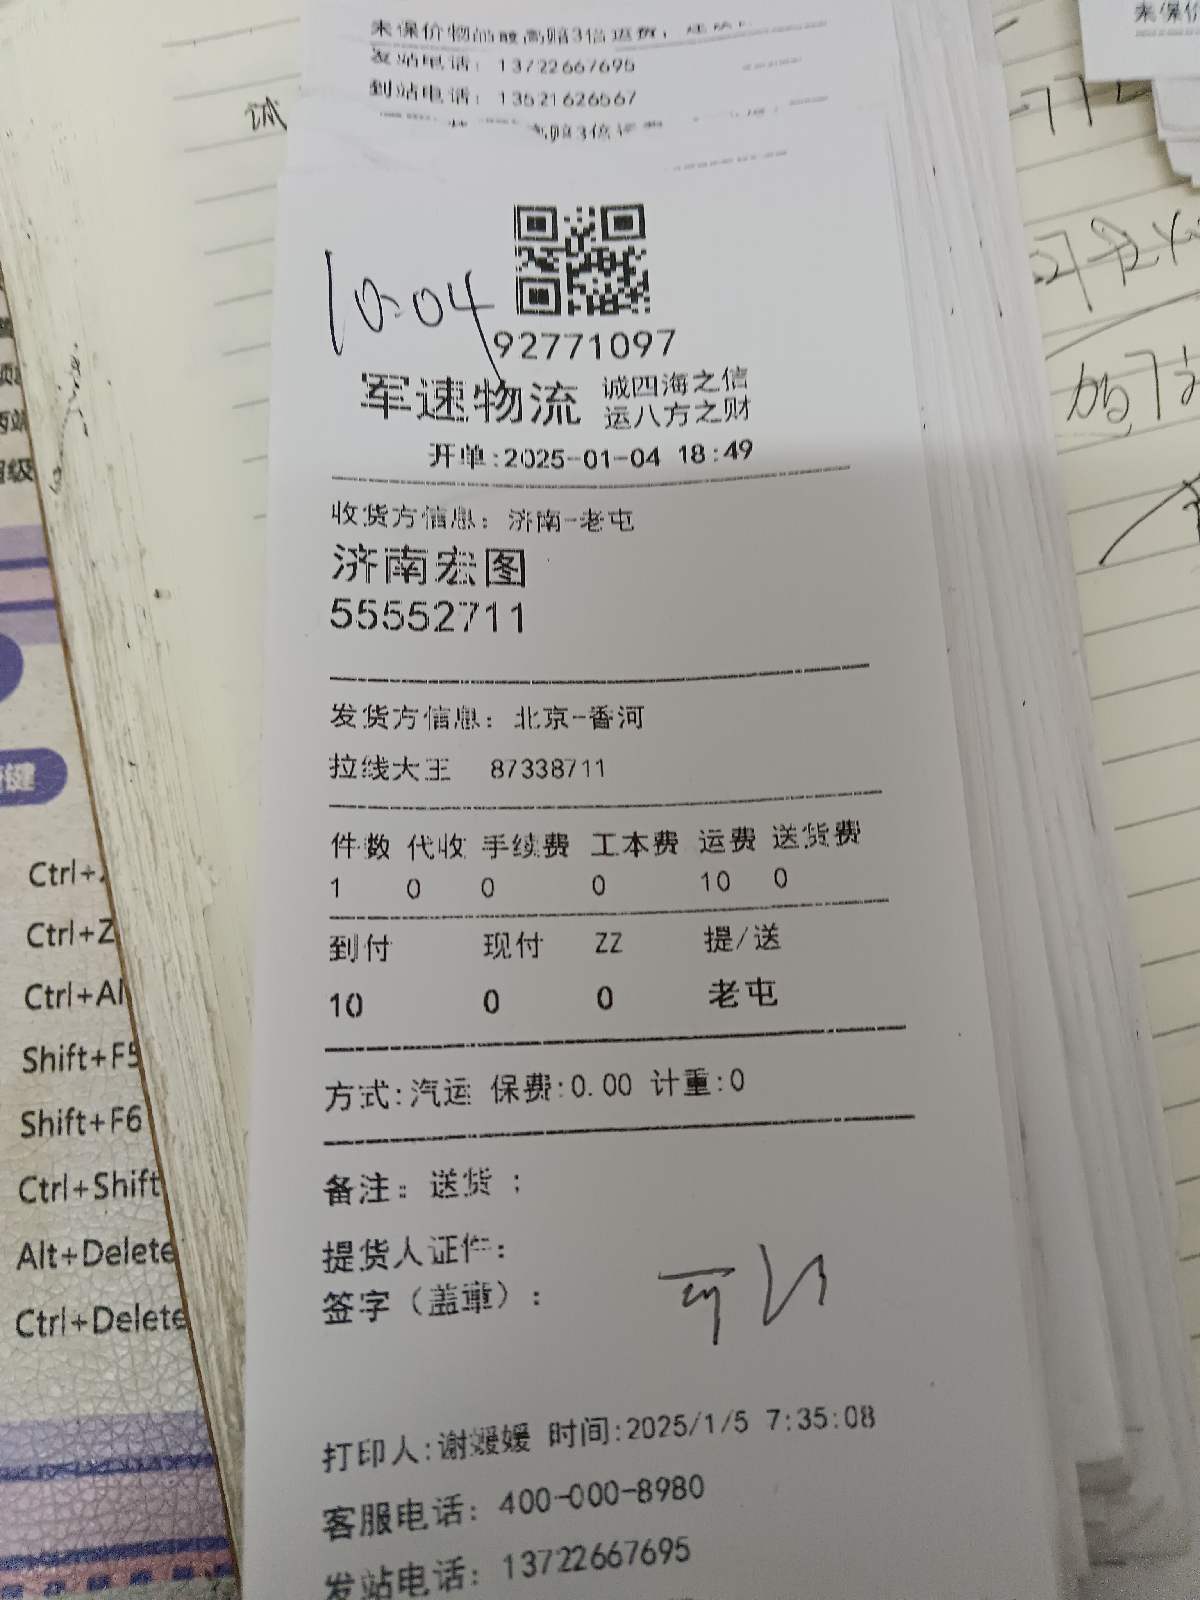 未保价物品最高赔3倍运费,
发站电话: 13722667695
到站电话: 13521626567
诚
10:04
92771097
军速物流 诚四海之信
运八方之财
开单:2025-01-04 18:49
收货方信息: 济南-老屯
济南宏图
55552711
发货方信息: 北京-香河
拉线大王 87338711
件数 代收 手续费 工本费 运费 送货费
1 0 0 0 10 0
到付 现付 ZZ 提/送
10 0 0 老屯
方式:汽运 保费:0.00 计重:0
备注: 送货 ;
提货人证件:
签字(盖章):
打印人:谢媛媛 时间:2025/1/5 7:35:08
客服电话: 400-000-8980
发站电话: 13722667695
Ctrl+Z
Shift+F5
Shift+F6
Ctrl+Shift
Alt+Delete
Ctrl+Delete